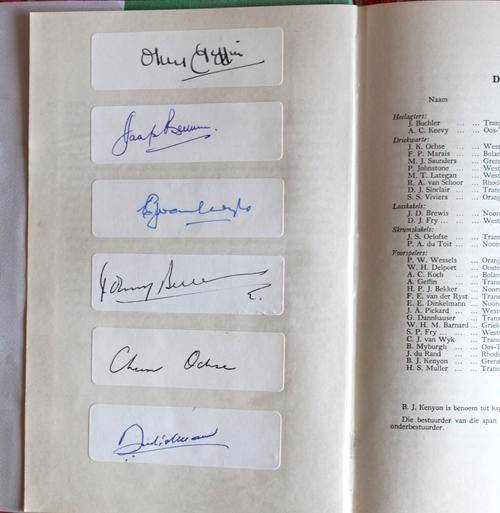 Okey Geffin
Chum Ochse
D
Naam
Heelagters:
J. Buchler ... ... Tran
A. C. Keevy ... ... Oos-
Driekwarte:
J. K. Ochse ... ... West
F. P. Marais ... ... Bolan
M. J. Saunders ... Gren
P. Johnstone ... ... West
M. T. Lategan ... ... West
R. A. van Schoor ... Rhode
D. J. Sinclair ... ... Tran
S. S. Viviers ... ... Oranj
Losskakels:
J. D. Brewis ... ... Noor
D. J. Fry ... ... ... West
Skrumskakels:
J. S. Oelofse ... ... Tran
P. A. du Toit ... ... Noor
Voorspelers:
P. W. Wessels ... Oranj
W. H. Delport ... Ooste
A. C. Koch ... ... Bolan
A. Geffin ... ... Trans
H. P. J. Bekker ... Noor
F. E. van der Ryst ... Trans
E. E. Dinkelmann ... Noor
J. A. Pickard ... ... West
G. Dannhauser ... Trans
W. H. M. Barnard ... Griek
S. P. Fry ... ... ... West
C. J. van Wyk ... Trans
B. Myburgh ... ... Oos-T
J. du Rand ... ... Rhode
B. J. Kenyon ... ... Grens
H. S. Muller ... ... Trans
B. J. Kenyon is benoem tot kap
Die bestuurder van die span
onderbestuurder.